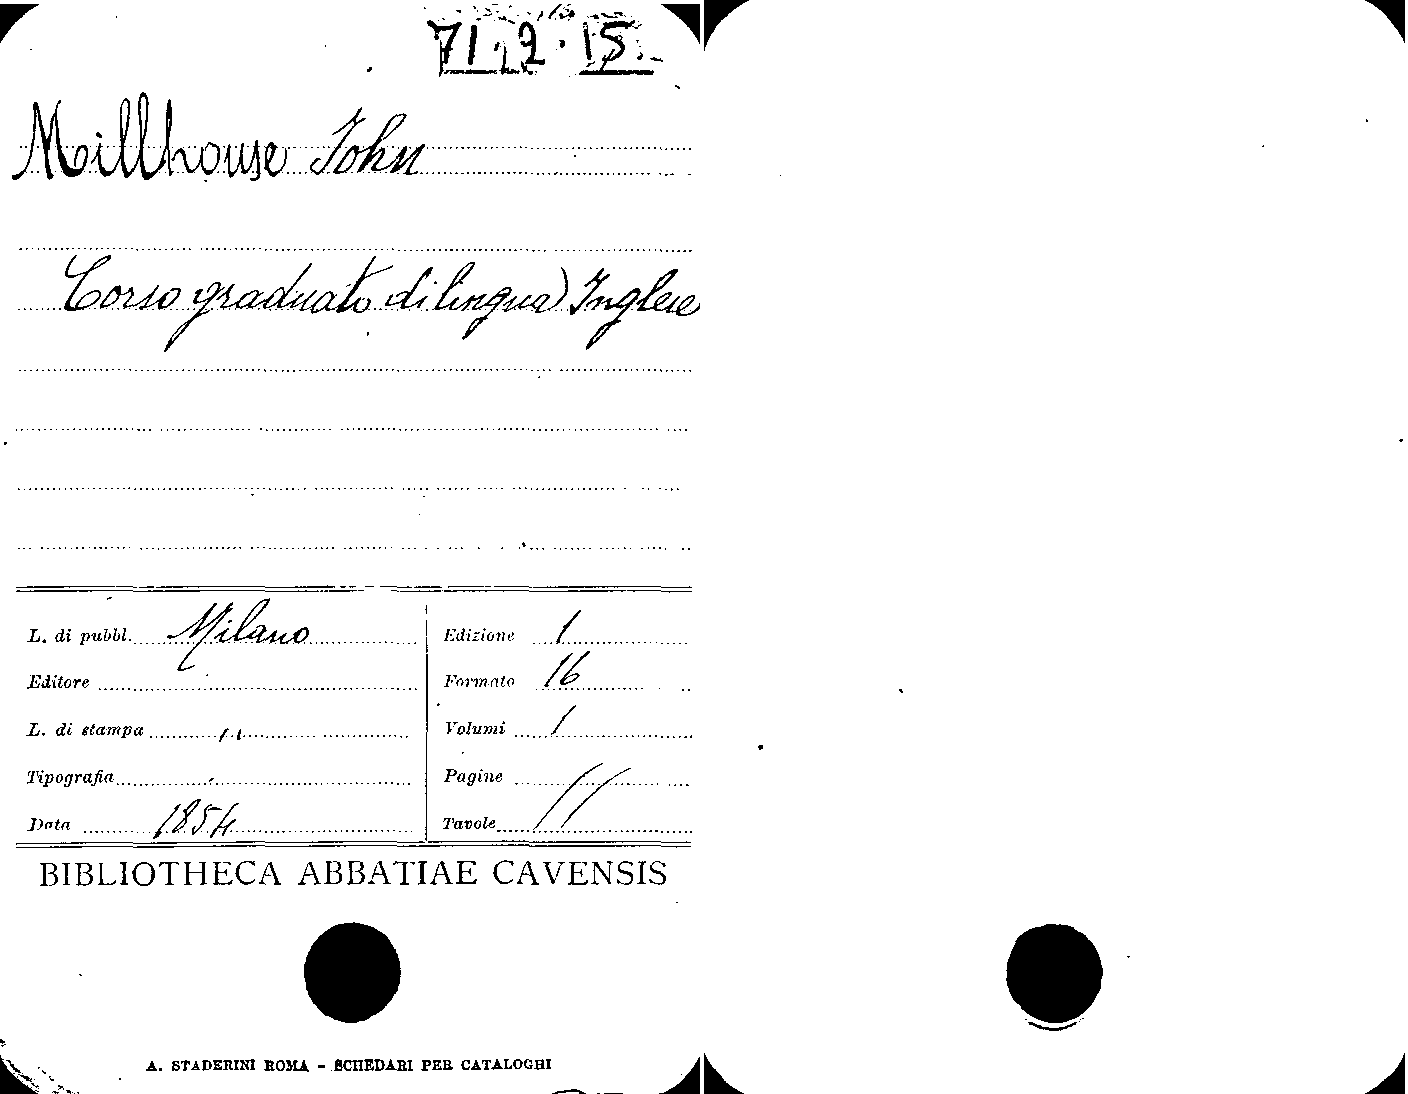 71.9.15
Millhouse John
Corso graduato di lingua Inglese
L. di pubbl. Milano
Editore
L. di stampa ,,
Tipografia
Data 1854
Edizione 1
Formato 16
Volumi 1
Pagine
Tavole
BIBLIOTHECA ABBATIAE CAVENSIS
A. STADERINI ROMA - SCHEDARI PER CATALOGHI